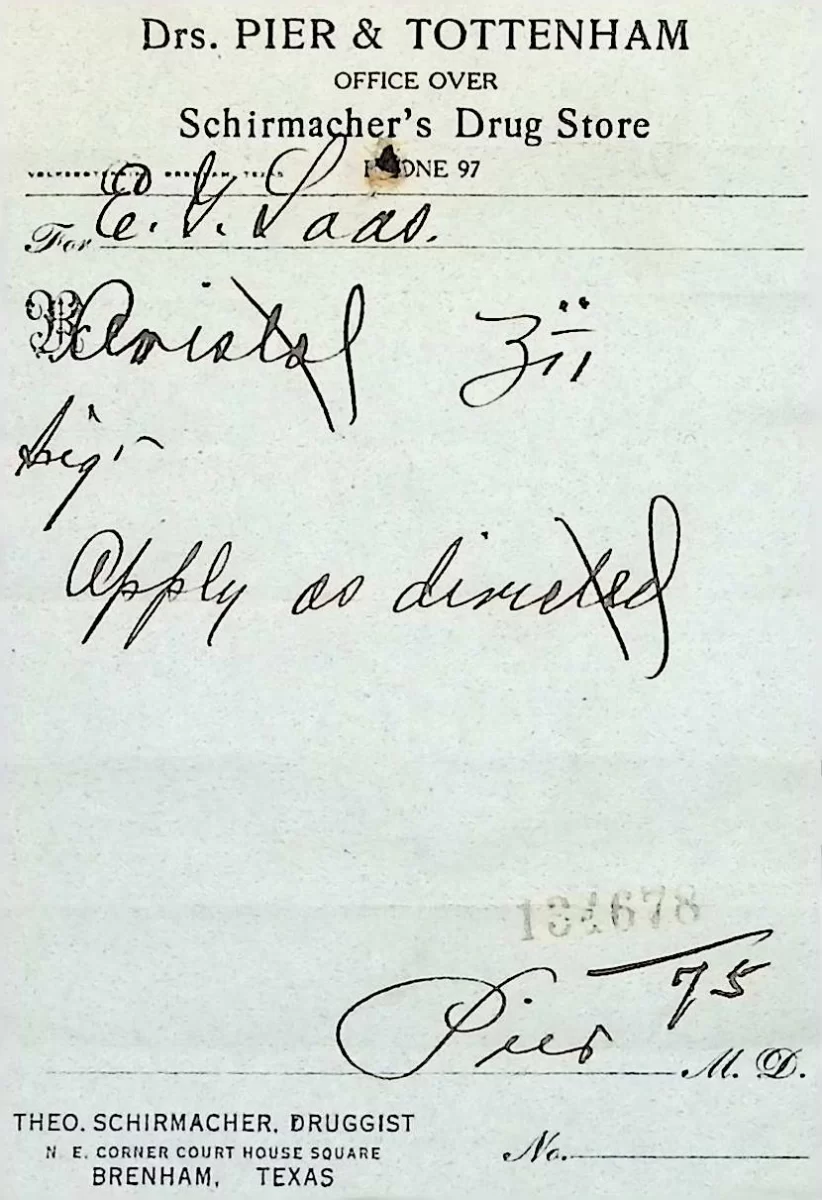 Drs. PIER & TOTTENHAM
OFFICE OVER
Schirmacher's Drug Store
BRENHAM, TEXAS PHONE 97
For E. G. Saas.
℞ Aristol ʒii
Sig.
Apply as directed
134678
75
Pier M. D.
THEO. SCHIRMACHER, DRUGGIST
N. E. CORNER COURT HOUSE SQUARE
BRENHAM, TEXAS
No.